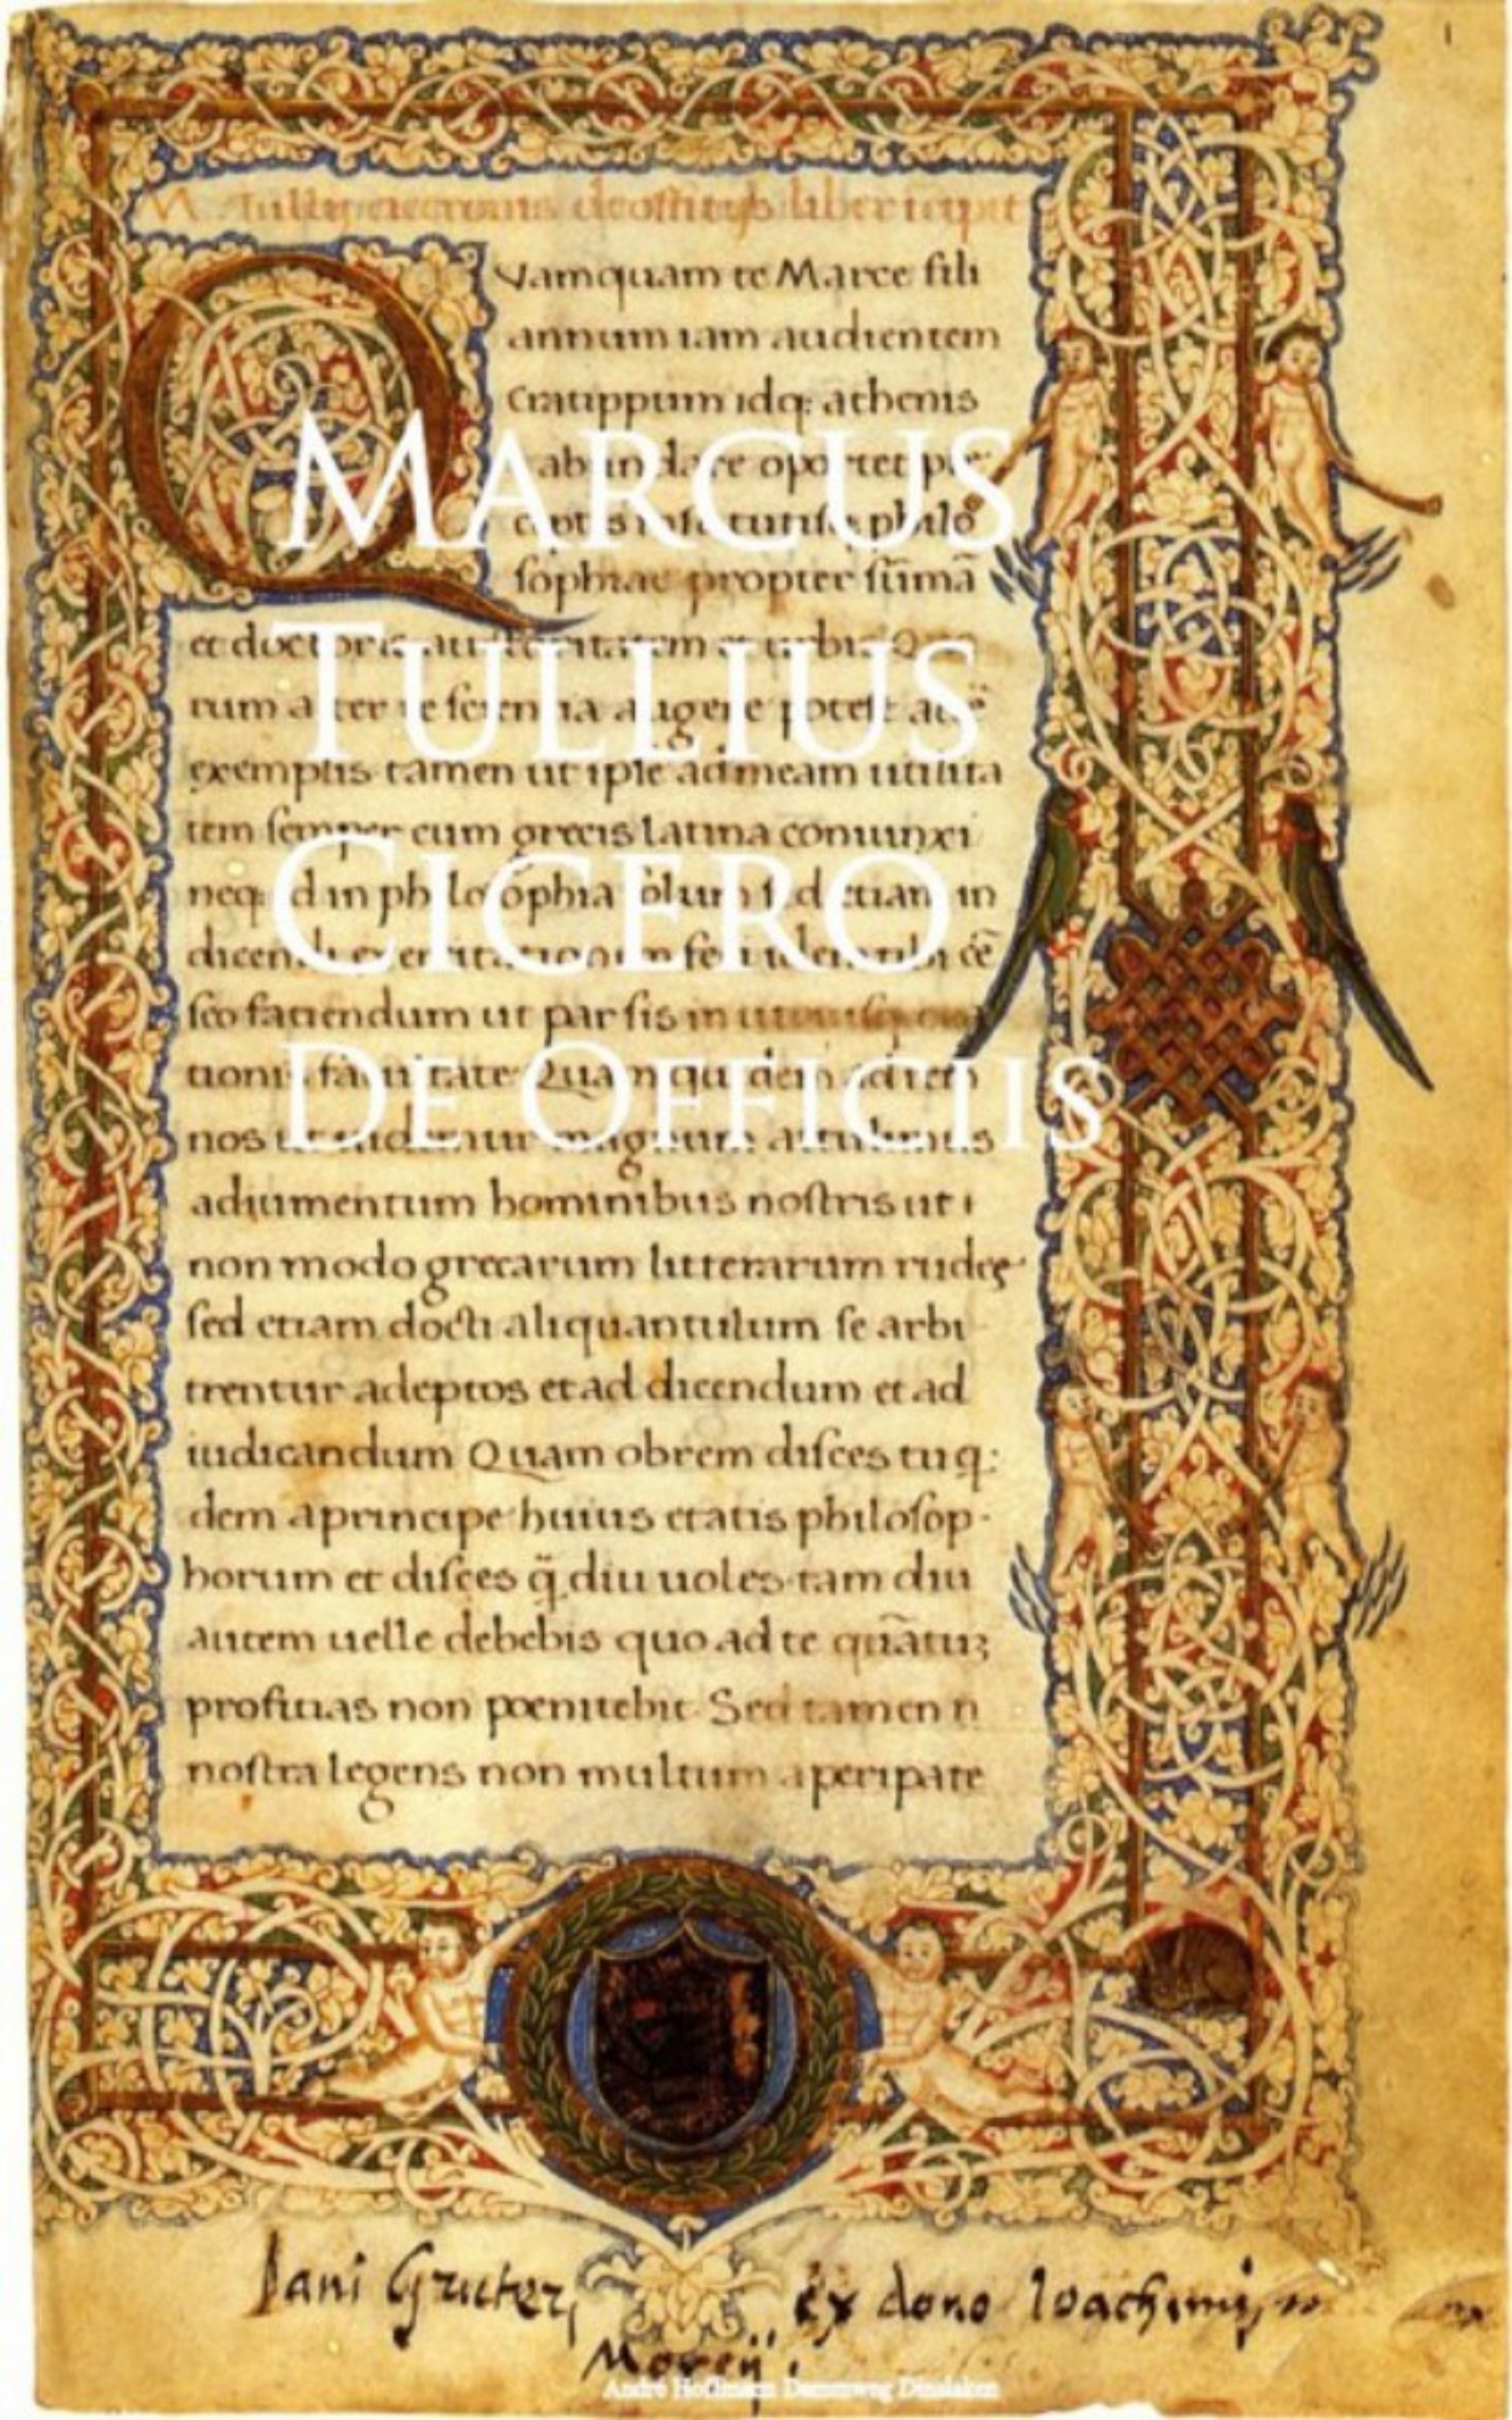 M. Tullij ciceronis de officijs liber icipit
Vamquam te Marce fili
annum iam audientem
Cratippum idq; athenis
abundare oportet
philo
sophiae propter sūmā
MARCUS
TULLIUS
CICERO
DE OFFICIIS
exemplis tamen ut ipse ad meam utilita
tem semper cum grecis latina coniunxi
in philosophia solum sed etiam in
seo faciendum ut par sis in
adiumentum hominibus nostris ut i
non modo grecarum litterarum rudes
sed etiam docti aliquantulum se arbi
trentur adeptos et ad dicendum et ad
iudicandum Quam obrem disces tu q:
dem a principe huius etatis philosop-
horum et disces q̄ diu uoles tam diu
autem uelle debebis quo ad te quātuʒ
proficias non poenitebit Sed tamen n
nostra legens non multum a peripate
Jani Gruteri ex dono Ioachimi
Morsij.
André Hoffmann Dammweg Dinslaken